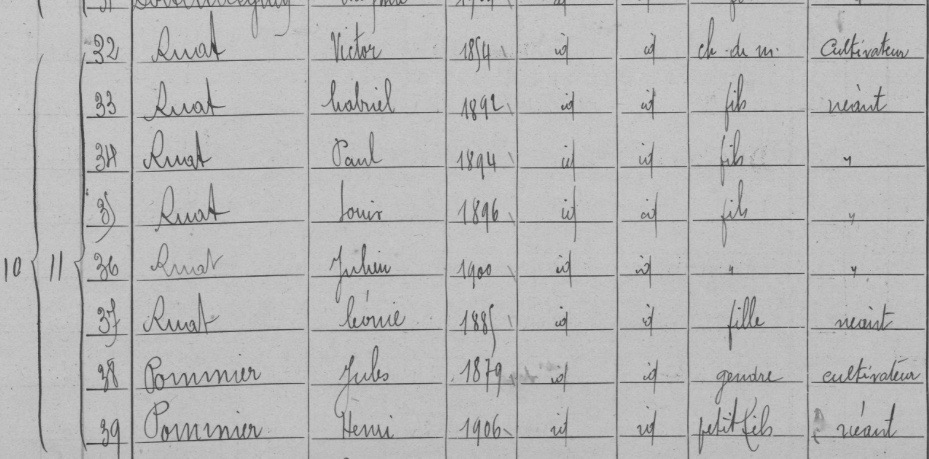 32 Ruat Victor 1854 id id ch. de m. Cultivateur
33 Ruat Gabriel 1892 id id fils néant
34 Ruat Paul 1894 id id fils "
35 Ruat Louis 1896 id id fils "
10 11 36 Ruat Julien 1900 id id " "
37 Ruat Léonie 1885 id id fille néant
38 Pommier Jules 1879 id id gendre cultivateur
39 Pommier Henri 1906 id id petit fils néant